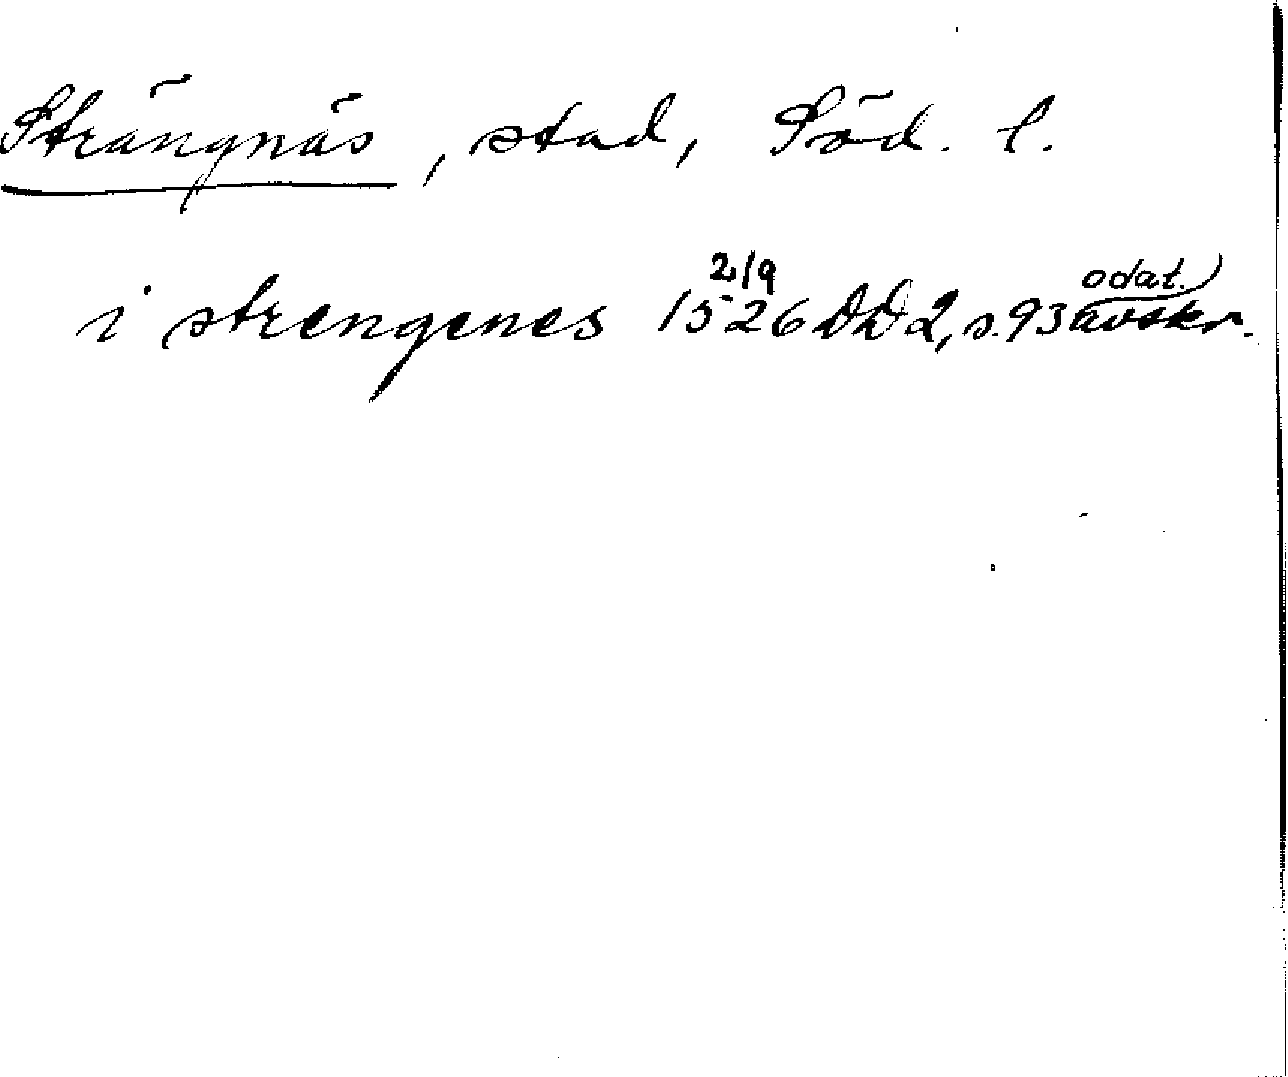 Strängnäs, stad, Söd. l.
i strengenes 1526 2/9 DD 2, s. 93 odat. avskr.